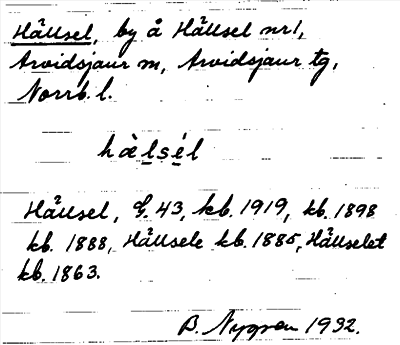 Hällsel, by å Hällsel nr 1,
Arvidsjaur sn, Arvidsjaur tg,
Norrb. l.
hà̀lsél
Hällsel, G. 43, kb. 1919, kb. 1898
kb. 1888, Hällsele kb. 1885, Hällselet
kb. 1863.
B. Nygren 1932.